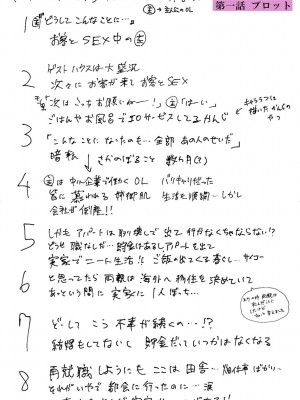 ㊤→主人公のOL
第一話 プロット
1 ㊤「どうしてこんなことに…」
お客とSEX中の㊤
2 ゲストハウスは大盛況
次々にお客が来てお客とSEX
次はこっちお願いねー!」㊤「はーい」
ごはんやお風呂でエロサービスしてるかんじ
キャララフに描いたかんじのやつ
3 「こんなことになったのも…全部あの人のせいだ」
暗転
さかのぼること 数ヶ月(?)
4 ㊤は中小企業で働くOL バリキャリだった
皆に慕われる姉御肌 生活も順調…しかし
会社が倒産!!
5 しかもアパートは取り壊しで出て行かなくちゃならない!?
どうせ職なしだ…貯金はあるしアパートも出て
実家でニート生活!! ご飯の出てくる暮し サイコー
6 と思ってたら両親は海外へ移住を決めていて
あっという間に実家に1人ぼっち…
7 どーしてこう不幸が続くの…!?
結婚もしてないし貯金だっていつかはなくなる
8 再就職しようにもここは田舎…畑仕事ばかり…
それがいやで都会に行ったのに…涙